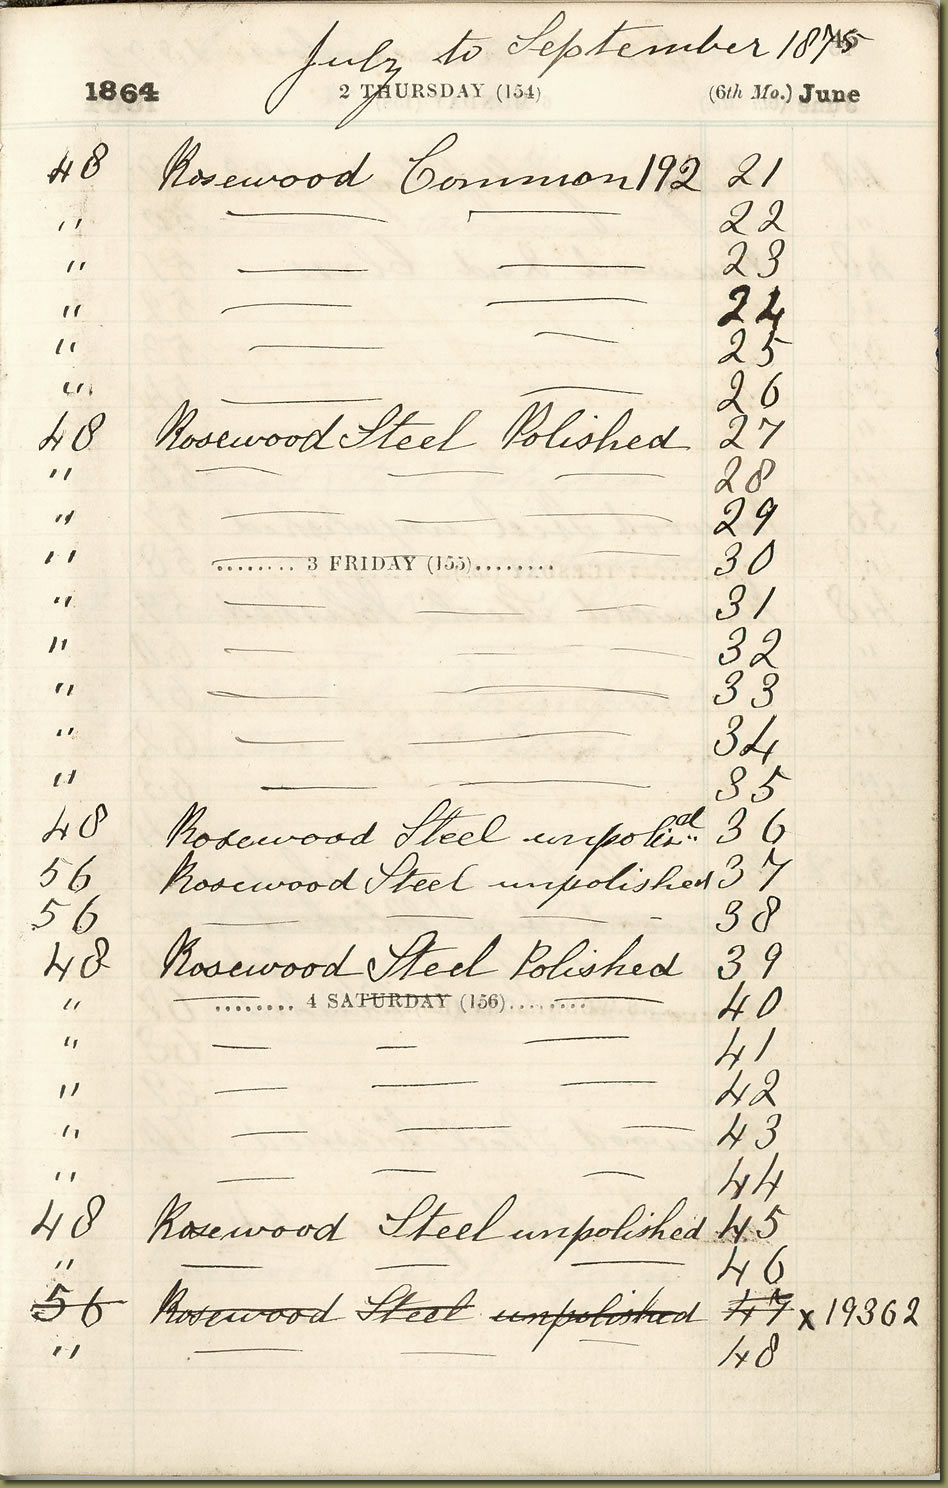 July to September 1875
1864 2 THURSDAY (154) (6th Mo.) June
48 Rosewood Common 192 21
" — — 22
" — — 23
" — — 24
" — — 25
" — — 26
48 Rosewood Steel Polished 27
" — — — 28
" — — — 29
" — — — 30
........ 3 FRIDAY (155)........
" — — — 31
" — — — 32
" — — 33
" — — 34
" — — 35
48 Rosewood Steel unpolisd 36
56 Rosewood Steel unpolished 37
56 — — — - 38
48 Rosewood Steel Polished 39
" — — — 40
........ 4 SATURDAY (156)........
" — — — 41
" — — — 42
" — — — 43
" — — — 44
48 Rosewood Steel unpolished 45
" — — — 46
56 Rosewood Steel unpolished 47 x 19362
" — — — 48